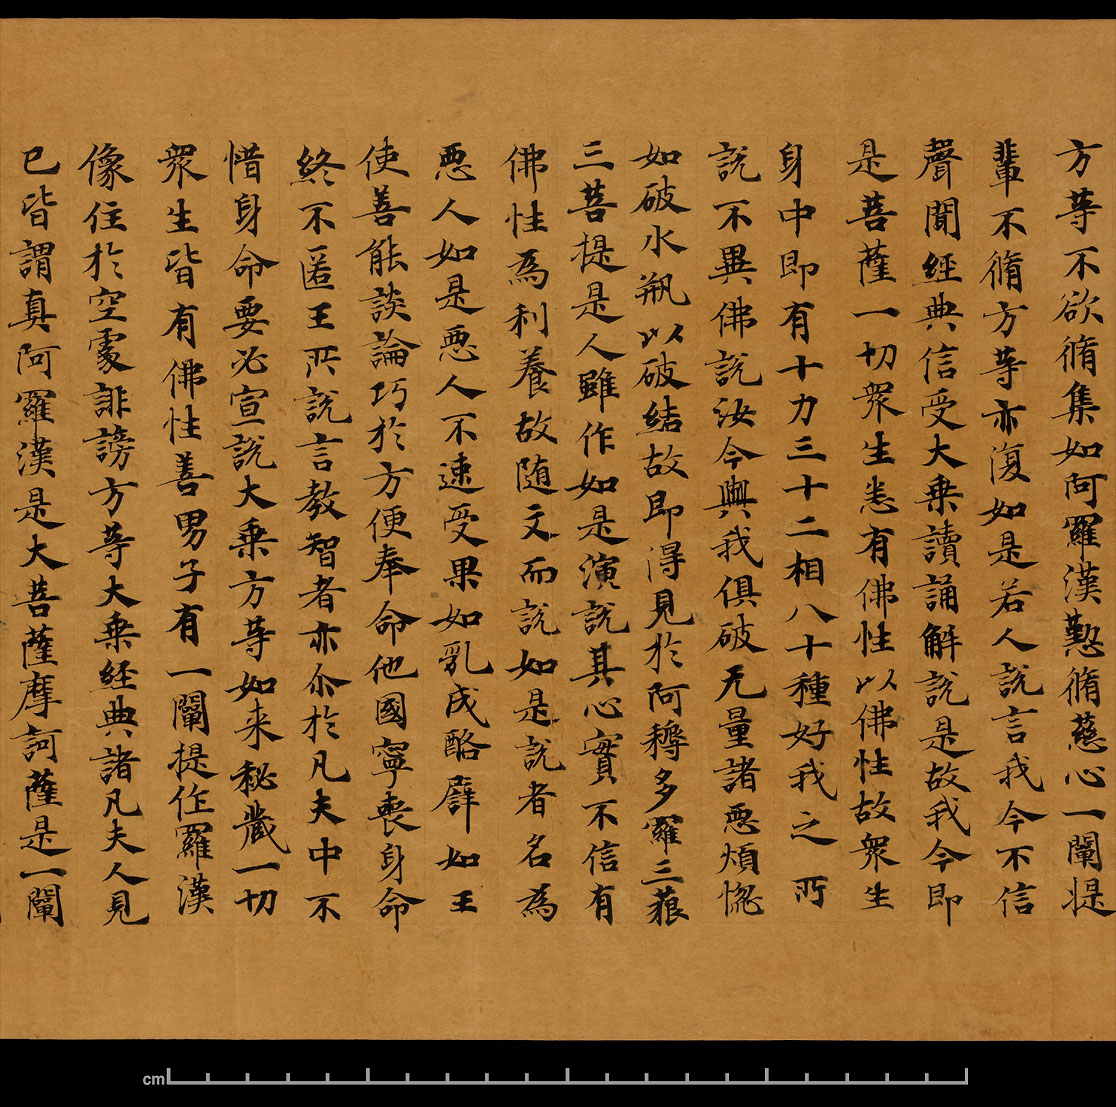 方等不欲脩集如阿羅漢懃脩慈心一闡提
輩不脩方等亦復如是若人說言我今不信
聲聞經典信受大乗讀誦解說是故我今即
是菩薩一切衆生悉有佛性以佛性故衆生
身中即有十力三十二相八十種好我之所
說不異佛說汝今與我俱破无量諸惡煩惱
如破水瓶以破結故即得見於阿耨多羅三藐
三菩提是人雖作如是演說其心實不信有
佛性為利養故随文而說如是說者名為
惡人如是惡人不速受果如乳成酪辟如王
使善能談論巧於方便奉命他國寧喪身命
終不匿王所說言教智者亦尒於凡夫中不
惜身命要必宣說大乗方等如来秘藏一切
衆生皆有佛性善男子有一闡提作羅漢
像住於空處誹謗方等大乗經典諸凡夫人見
已皆謂真阿羅漢是大菩薩摩訶薩是一闡
cm